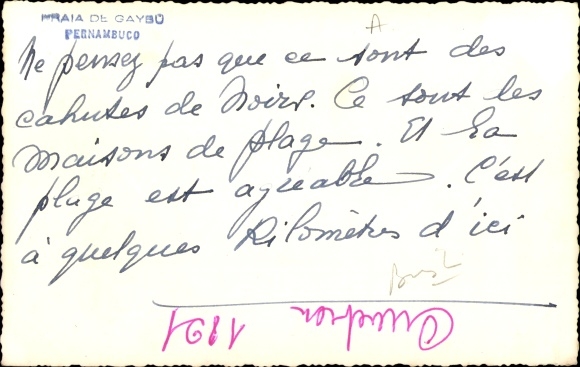 PRAIA DE GAYBÚ
PERNAMBUCO
A
Ne pensez pas que ce sont des
cahutes de Noirs. Ce sont les
maisons de plage. Et la
plage est agréable. C'est
à quelques Kilomètres d'ici
1891